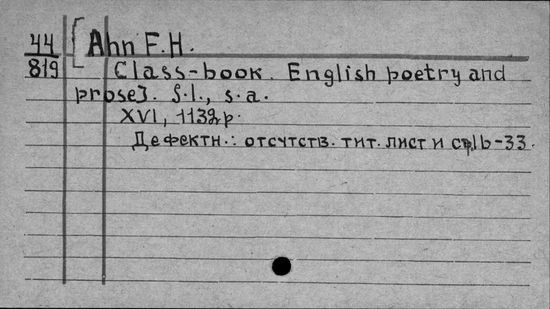 44 [Ahn F.H.
819 Class-book. English poetry and
prose]. S.l., s.a.
XVI, 1132p.
Дефектн.: отсутств. тит. лист и стр. 16-33.